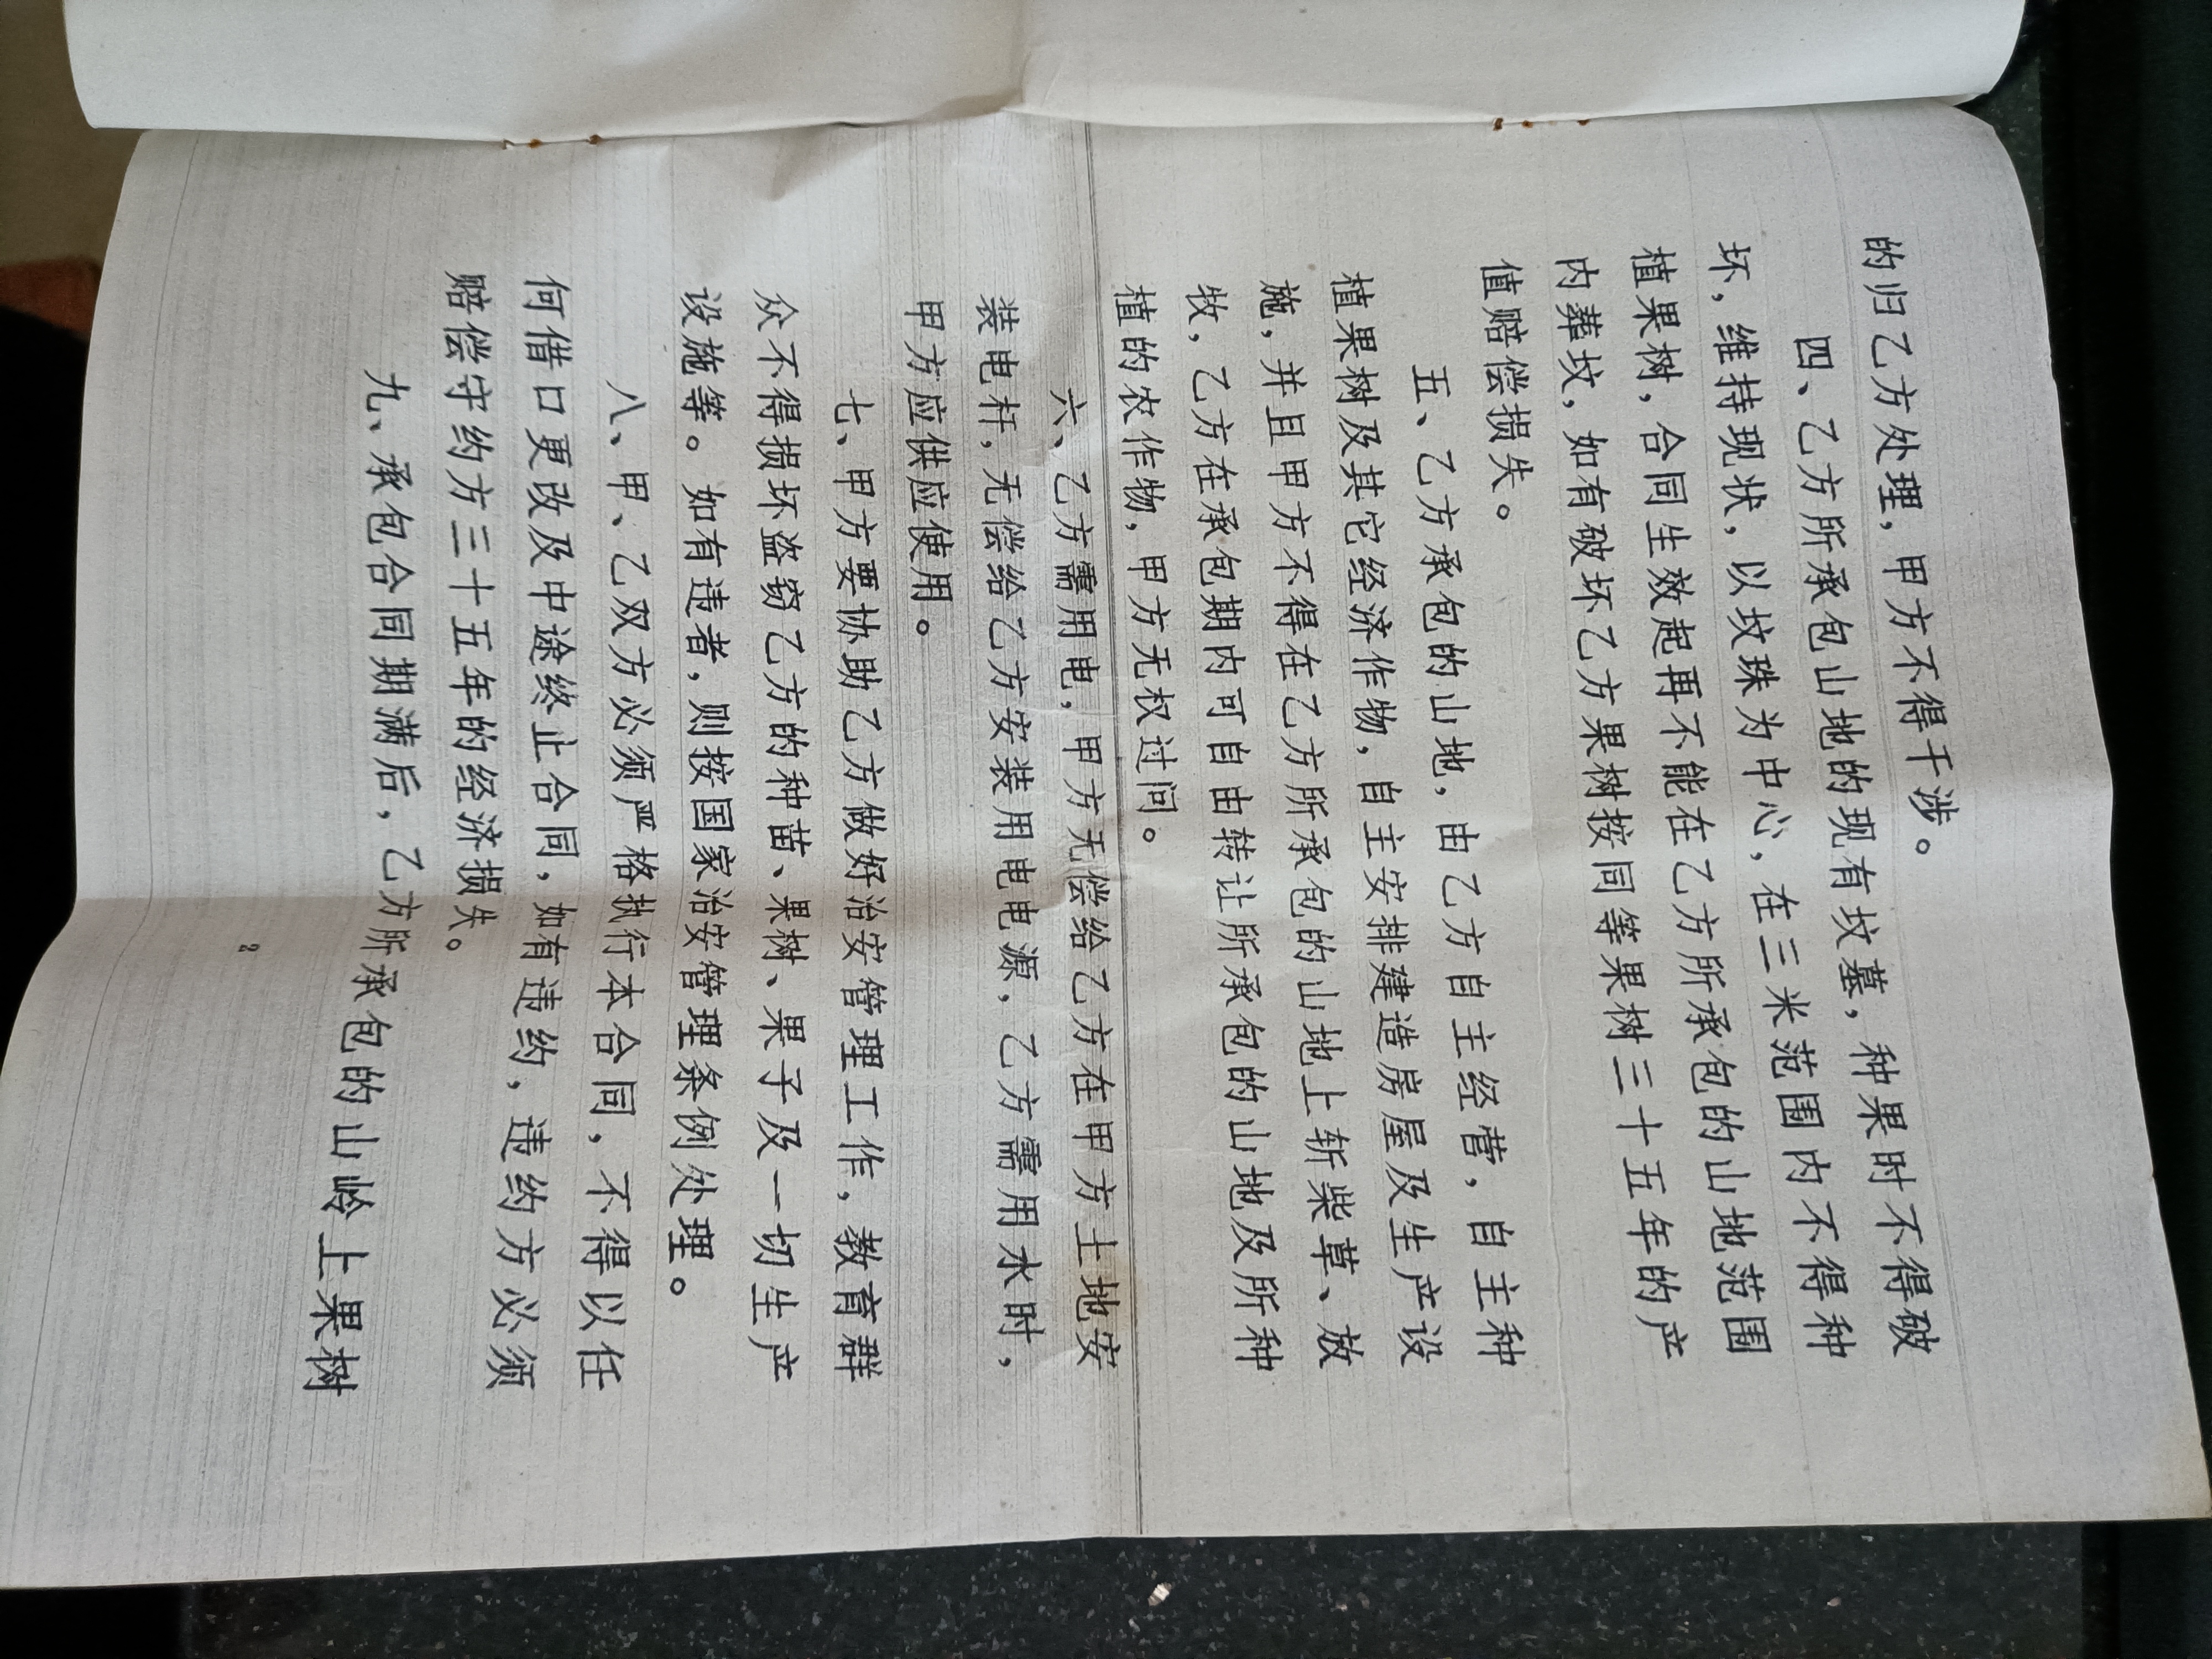 的归乙方处理，甲方不得干涉。
四、乙方所承包山地的现有坟墓，种果时不得破
坏，维持现状，以坟珠为中心，在三米范围内不得种
植果树，合同生效起再不能在乙方所承包的山地范围
内葬坟，如有破坏乙方果树按同等果树三十五年的产
值赔偿损失。
五、乙方承包的山地，由乙方自主经营，自主种
植果树及其它经济作物，自主安排建造房屋及生产设
施，并且甲方不得在乙方所承包的山地上斩柴草、放
牧，乙方在承包期内可自由转让所承包的山地及所种
植的农作物，甲方无权过问。
六、乙方需用电，甲方无偿给乙方在甲方土地安
装电杆，无偿给乙方安装用电电源，乙方需用水时，
甲方应供应使用。
七、甲方要协助乙方做好治安管理工作，教育群
众不得损坏盗窃乙方的种苗、果树、果子及一切生产
设施等。如有违者，则按国家治安管理条例处理。
八、甲、乙双方必须严格执行本合同，不得以任
何借口更改及中途终止合同，如有违约，违约方必须
赔偿守约方三十五年的经济损失。
九、承包合同期满后，乙方所承包的山岭上果树
2